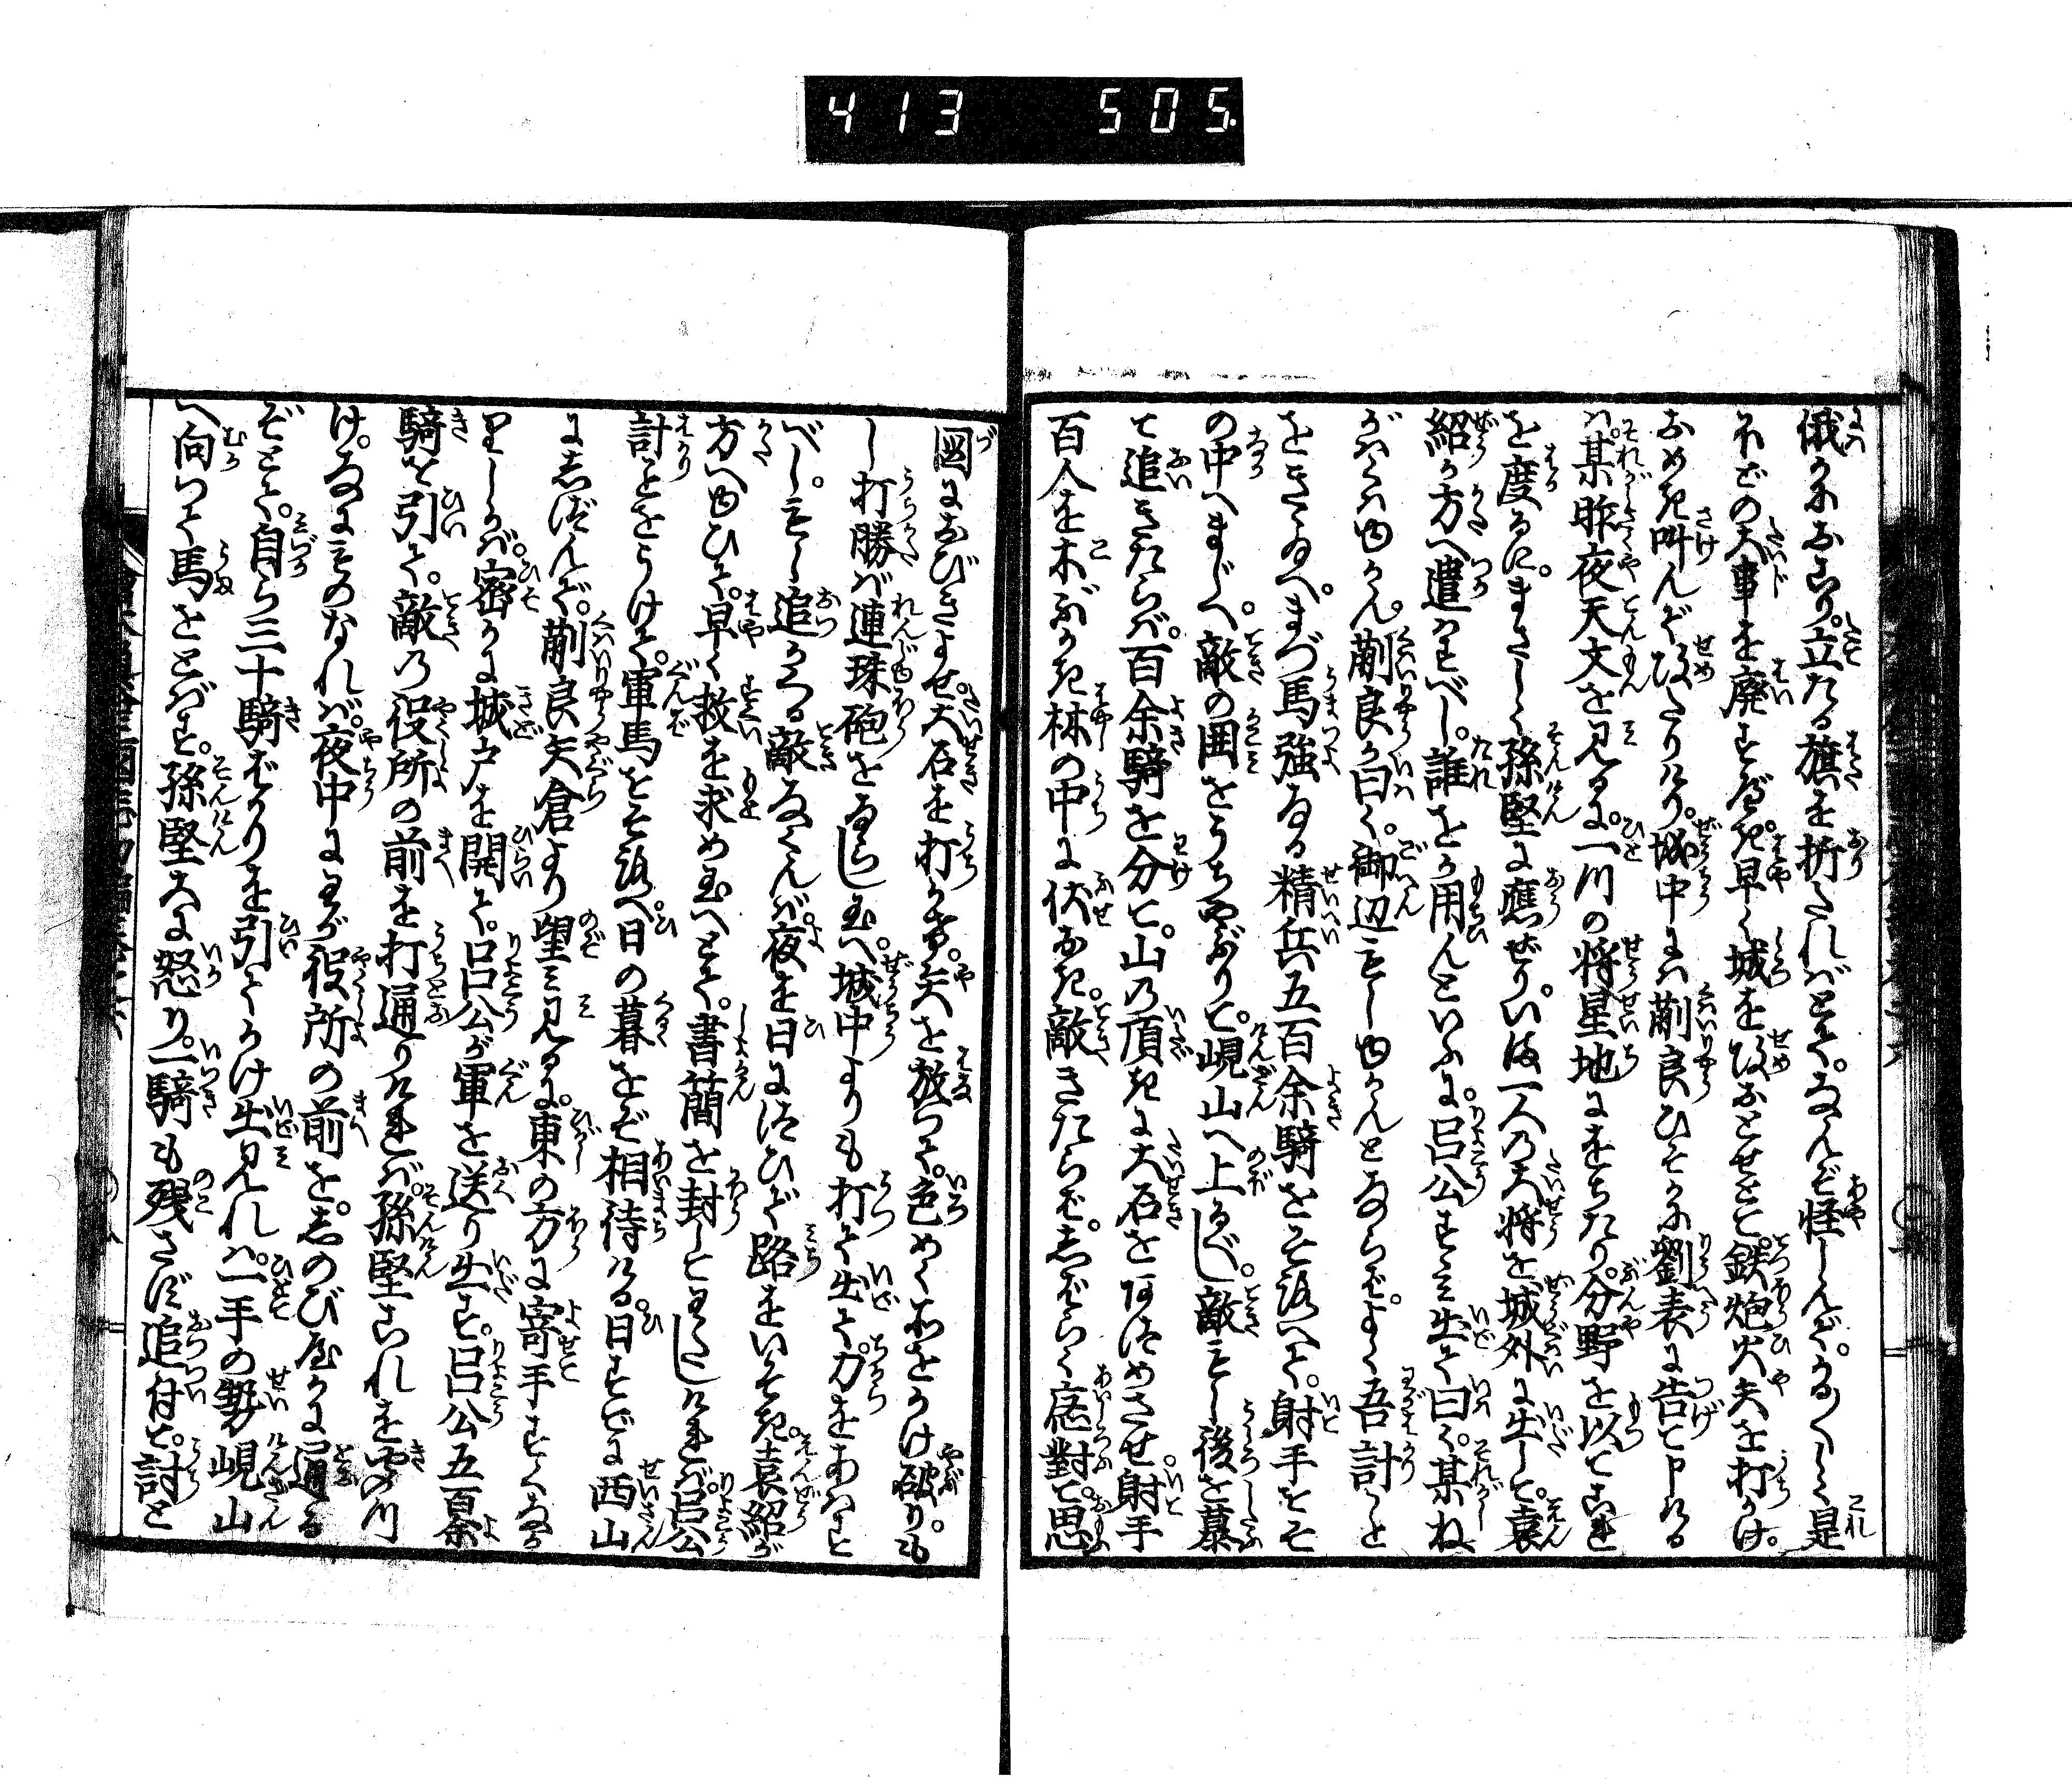 413 505
俄かにおこり。立たる旗を折たればとて。なんぞ怪しんぞ。かるぐしく是
ほどの大事を廃すべき。早く城を攻おとせとて。鉄炮火矢を打かけ。
おめき叫んで攻たりけり。城中には蒯良ひそかに劉表に告て申ける
は。某昨夜天文を見るに。一川の将星地におちたり。分野を以てこれ
を度るに。まさしく孫堅に應ぜり。いま一人の大将を城外に出して。袁
紹が方へ遣はすべし。誰をか用んといふに。呂公すゝみ出て曰く。某ね
がはくはゆかん。蒯良が曰く。御辺もしゆかんとならば。よく吾計ごと
をきゝ玉へ。まづ馬強なる精兵五百余騎をそろへて。射手をそ
の中へまじへ。敵の囲をうちやぶりて。峴山へ上るべし。敵もし後を慕
て追きたらば。百余騎を分て。山の頂きに大石をあつめさせ。射手
百人を木ぶかき林の中に伏おき。敵きたらば。しばらく應對て思ふ
図におびきよせ。大石を打かけ。矢を放つて。色めく所をうけ破り。も
し打勝ば連珠砲をならし玉へ。城中よりも打て出て。力をあはす
べし。もし追かゝる敵なくんば。夜を日につひで路をいそぎ。袁紹が
方へゆひて。早く救を求め玉へとて。書簡を封してわたしければ。呂公
計ごとをうけて。軍馬をそろへ日の暮をぞ相待ける。日すでに西山
にしづんで。蒯良矢倉より望み見るに。東の方に寄手すくなか
りしかば。密かに城戸を開て。呂公が軍を送り出す。呂公五百余
騎を引て。敵の役所の前を打通りければ。孫堅これをきゝつ
け。なにものなれば。夜中にわが役所の前を。しのびやかに通る
ぞとて。自ら三十騎ばかりを引てかけ出見れば。一手の勢峴山
へ向つて馬をとばす。孫堅大に怒り。一騎も残さず追付て。討と